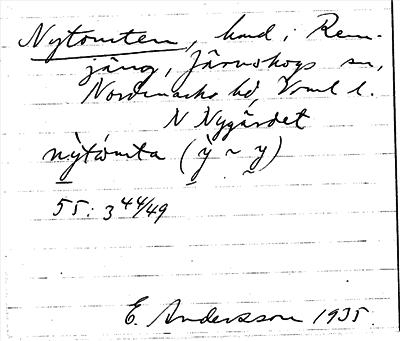 Nytomten, hmd i Ren-
jäng, Järnskogs sn,
Nordmarks hd, Vrml l.
N Nygärdet
nỳtómta (ỳ ~ y)
55: 3 44/49
E. Andersson 1935.